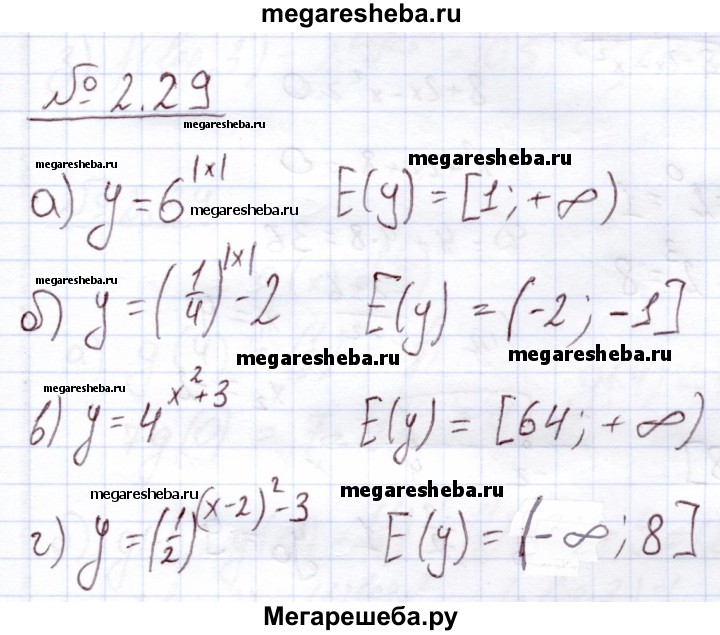 megaresheba.ru
№ 2.29
megaresheba.ru
megaresheba.ru
megaresheba.ru
а) y = 6^|x| E(y) = [1; +∞)
megaresheba.ru
megaresheba.ru
б) y = (1/4)^|x| - 2 E(y) = (-2; -1]
megaresheba.ru
megaresheba.ru
megaresheba.ru
в) y = 4^x²+3 E(y) = [64; +∞)
megaresheba.ru
megaresheba.ru
г) y = (1/2)^(x-2)²-3 E(y) = (-∞; 8]
Мегарешеба.ру